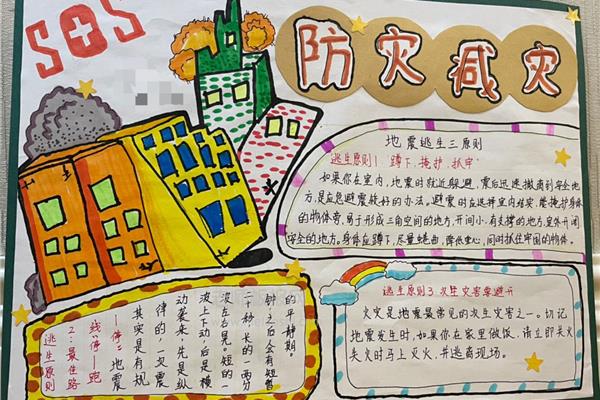 SOS
防灾减灾
地震逃生三原则
逃生原则1 "蹲下、掩护、抓牢"
如果你在室内,地震时就近躲避,震后迅速撤离到安全地
方,是应急避震较好的办法。避震时应选择室内结实,能掩护身体
的物体旁,易于形成三角空间的地方,开间小、有支撑的地方,室外开阔
安全的地方。身体应蹲下,尽量蜷曲,降低重心,同时抓住牢固的物体。
逃生原则
2:最佳路
线:停—跑
—停:地震
其实是有规
律的,一次震
动袭来,先是纵
波上下动后是横
波左右晃,短的一
二十秒,长的一两分
钟,之后会有短暂
的平静期。
逃生原则3.次生灾害要避开
火灾是地震最常见的次生灾害之一。切记
地震发生时,如果你在家里做饭,请立即关火
失火时马上灭火,并逃离现场。